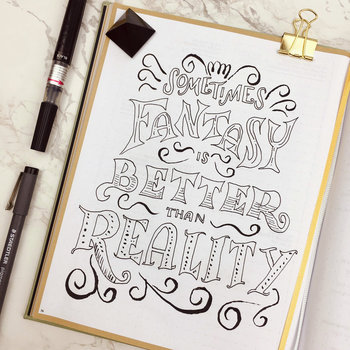 SOMETIMES
FANTASY
IS
BETTER
THAN
REALITY
STAEDTLER